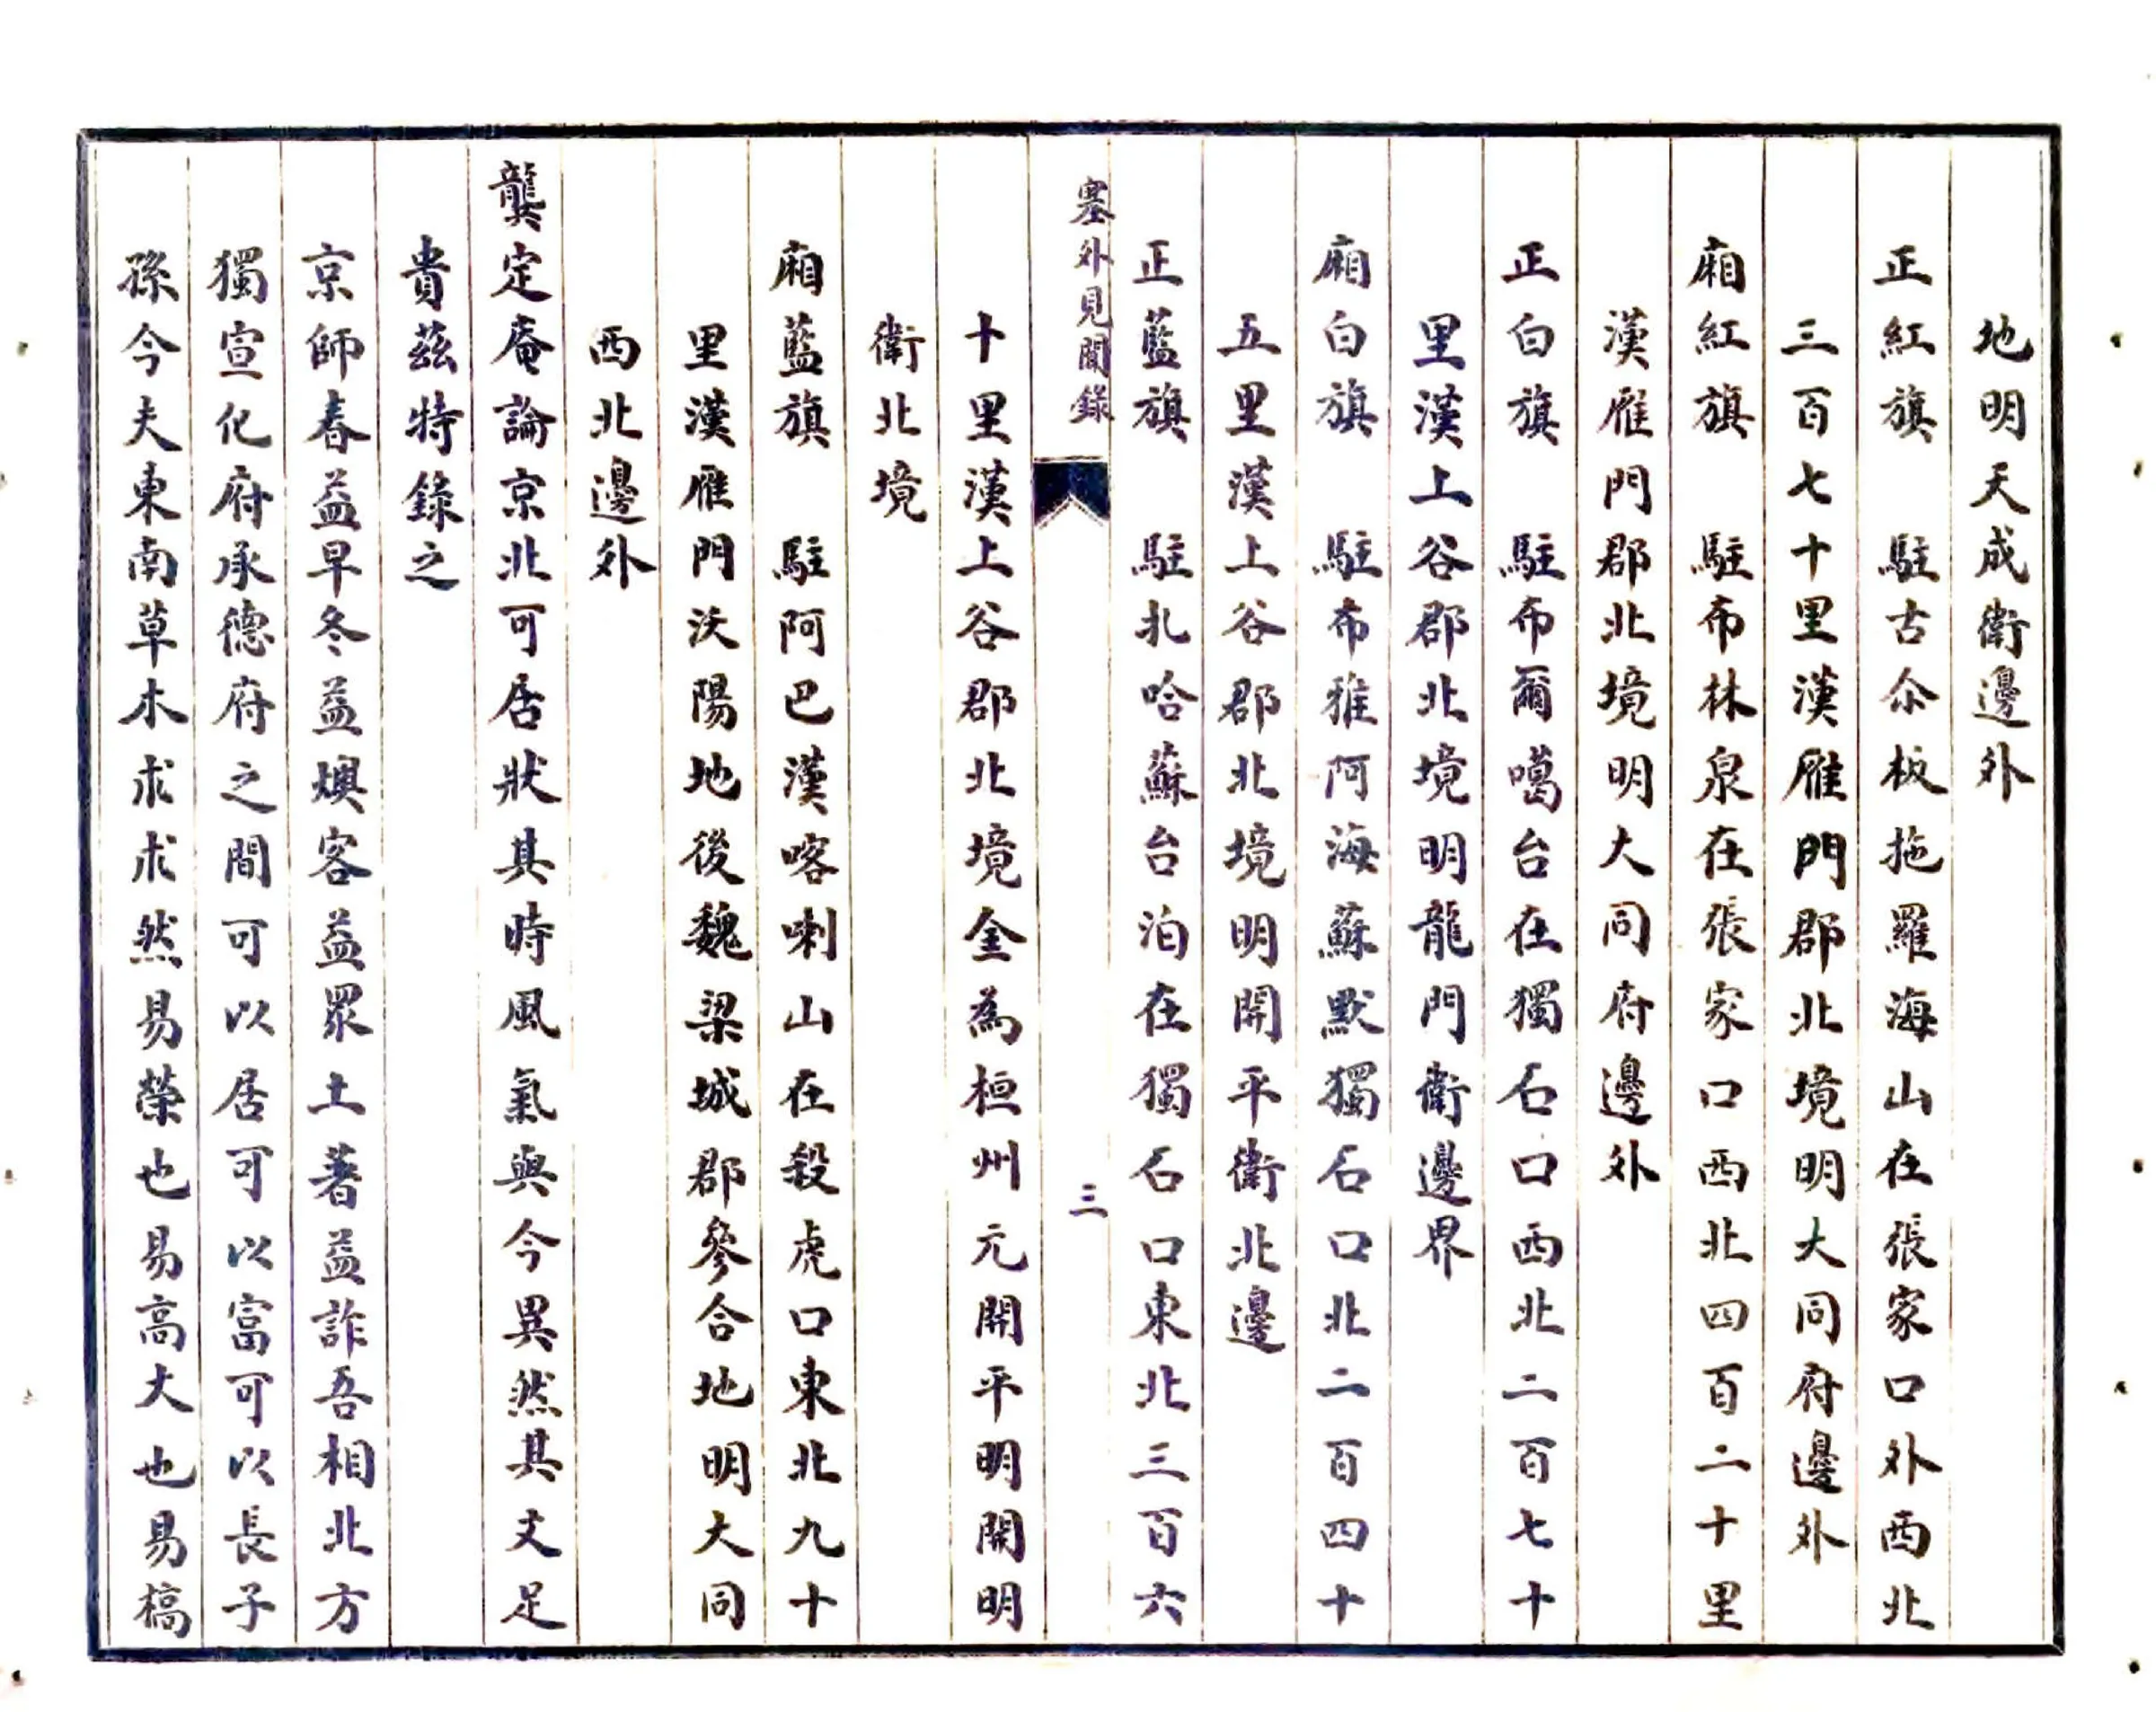 地明天成衛邊外
正紅旗　駐古尒板拖羅海山在張家口外西北
三百七十里漢雁門郡北境明大同府邊外
廂紅旗　駐布林泉在張家口西北四百二十里
漢雁門郡北境明大同府邊外
正白旗　駐布爾噶台在獨石口西北二百七十
里漢上谷郡北境明龍門衛邊界
廂白旗　駐布雅阿海蘇默獨石口北二百四十
五里漢上谷郡北境明開平衛北邊
正藍旗　駐扎哈蘇台泊在獨石口東北三百六
塞外見聞錄
三
十里漢上谷郡北境金為桓州元開平明開明
衛北境
廂藍旗　駐阿巴漢喀喇山在殺虎口東北九十
里漢雁門沃陽地後魏梁城郡參合地明大同
西北邊外
龔定庵論京北可居狀其時風氣與今異然其文足
貴茲特錄之
京師春益早冬益燠客益益眾土著益詐吾相北方
獨宣化府承德府之間可以居可以富可以長子
孫今夫東南草木求求然易榮也易高大也易槁